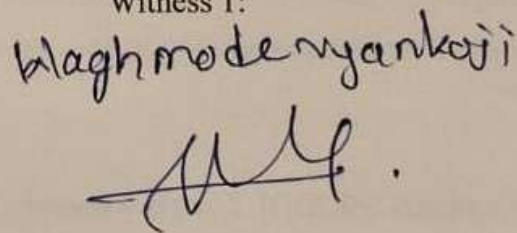 Witness 1:
Waghmode vyankoji